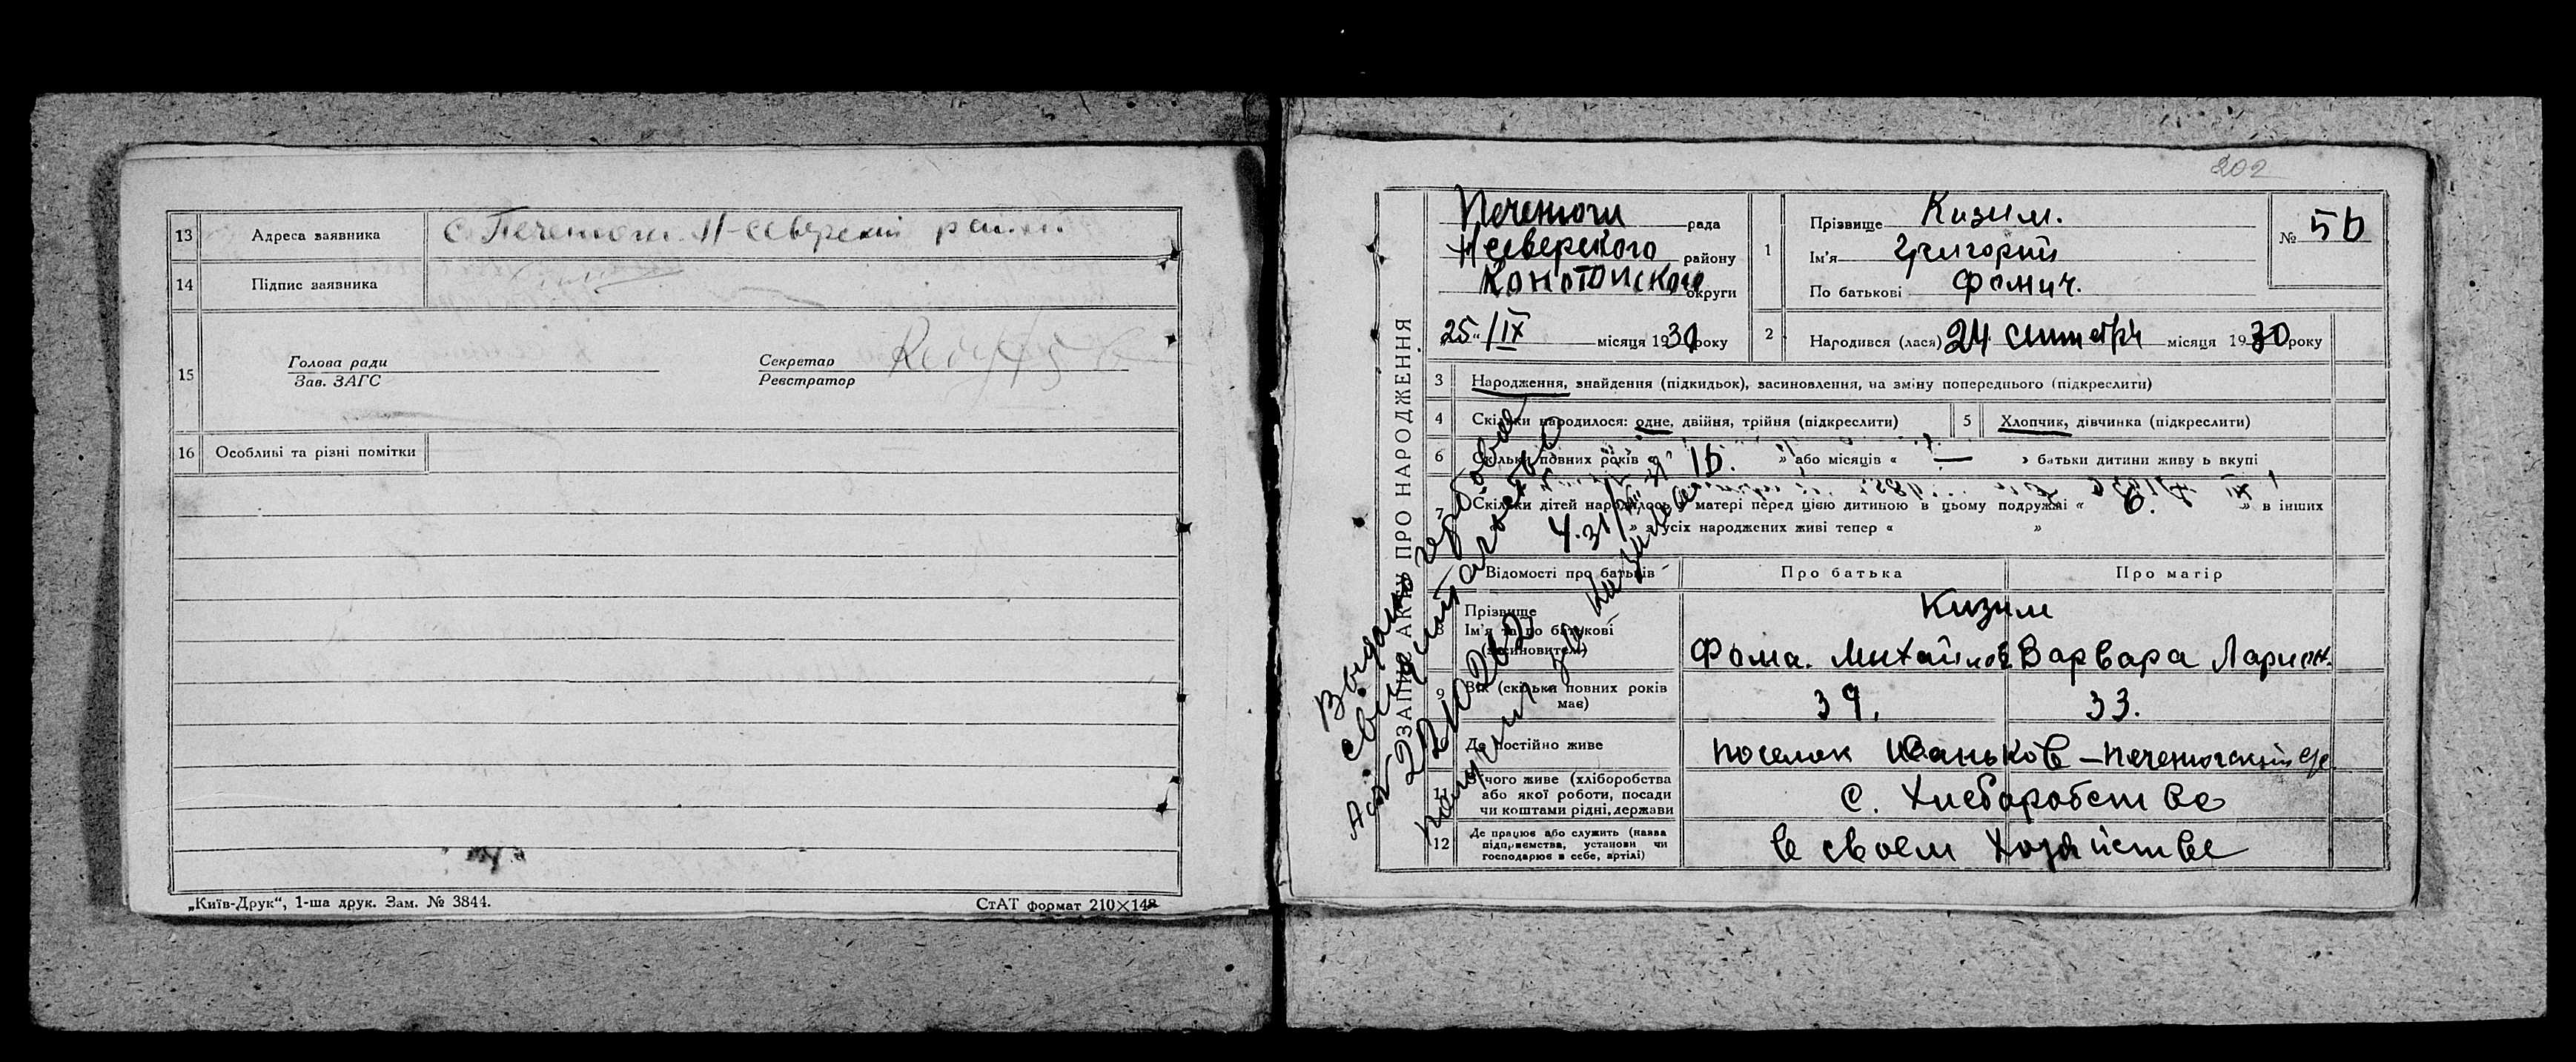 13 Адреса заявника с. Печенюги Н-Северский район
14 Підпис заявника
15 Голова ради
Зав. ЗАГС
Секретар
Реєстратор
16 Особливі та різні помітки
„Київ-Друк“, 1-ша друк. Зам. № 3844.
СтАТ формат 210×148
202
ЗАПИС АКТУ ПРО НАРОДЖЕННЯ
Печенюги рада
Н Северского району
Конотопского округи
25 “/IX місяця 1930 року
1 Прізвище Кизим.
Ім'я Григорий
По батькові Фомич.
№ 50
2 Народився (лася) 24 сентября місяця 1930 року
3 Народження, знайдення (підкидьок), засиновлення, на зміну попереднього (підкреслити)
4 Скільки народилося: одне, двійня, трійня (підкреслити)
5 Хлопчик, дівчинка (підкреслити)
6 Скільки повних років « 16. » або місяців « — » батьки дитини живу ь вкупі
7 Скільки дітей народилось у матері перед цією дитиною в цьому подружжі « 6. » в інших
» з усіх народжених живі тепер « »
Відомості про батьків Про батька Про матір
8 Прізвище
Ім'я та по батькові
(засиновителі)
Кизим
Фома. Михайлов Варвара Ларион.
9 Вік (скільки повних років має) 39. 33.
Де постійно живе поселок Иваньков — Печенюгский с/с
11 З чого живе (хліборобства
або якої роботи, посади
чи коштами рідні, держави
с. Хлеборобство
12 Де працює або служить (назва
підприємства, установи чи
господарює в себе, артілі)
в своем хозяйстве
Выдано гербовое
свидетельство